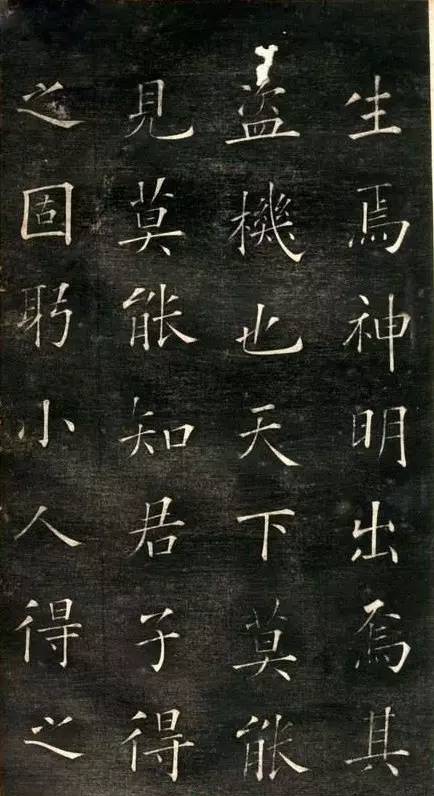 生焉神明出焉其
盜機也天下莫能
見莫能知君子得
之固躬小人得之